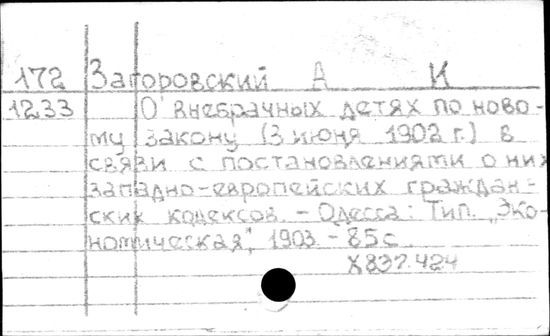 172 Загоровский А И
1233 О внебрачных детях по ново-
му закону (3 июня 1902 г.) в
связи с постановлениями о них
западно-европейских граждан-
ских кодексов. - Одесса: Тип. „Эко-
номическая", 1903. - 85 с.
X 837.424